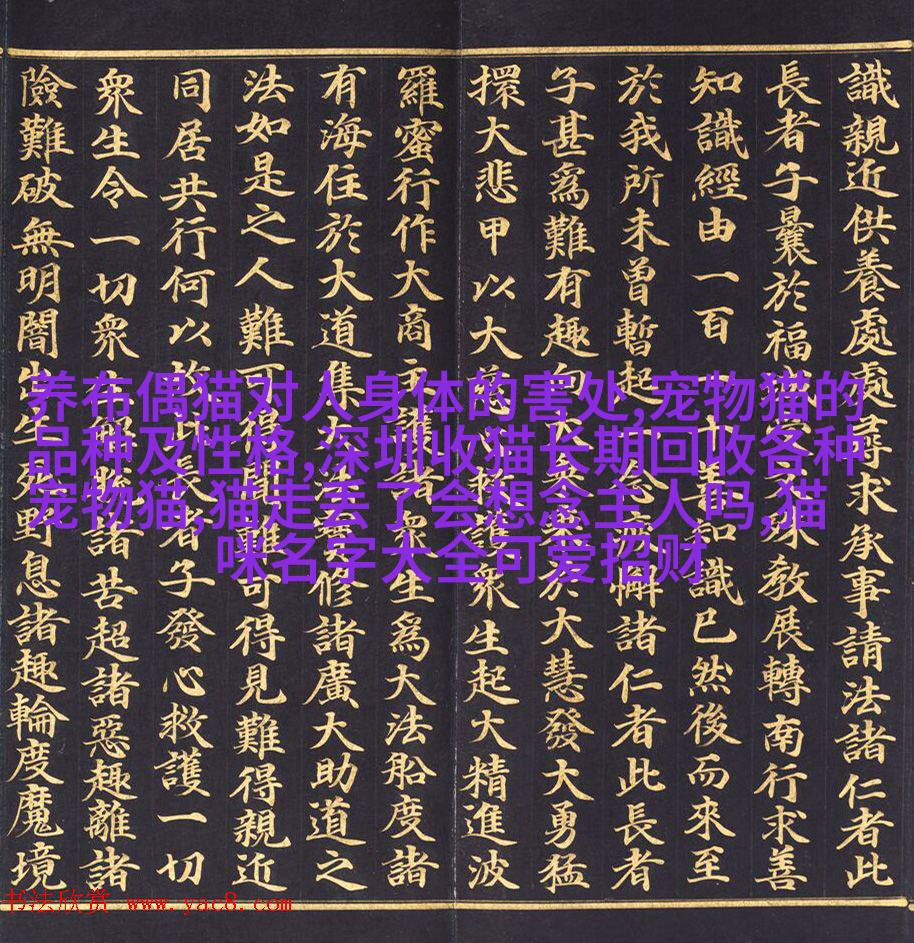 識親近供養處處尋求承事請法諸仁者此
長者子曩於福城受文殊教展轉南行求善
知識經由一百一十善知識已然後而來至
於我所未曾暫起一念疲懈諸仁者此長者
子甚爲難有趣向大乘乘於大慧發大勇猛
擐大悲甲以大慈心救護衆生起大精進波
羅蜜行作大商主護諸衆生爲大法船度諸
有海住於大道集大法寶修諸廣大助道之
法如是之人難可得聞難可得見難得親近
同居共行何以故此長者子發心救護一切
衆生令一切衆生解脫諸苦超諸惡趣離諸
險難破無明闇出生死野息諸趣輪度魔境
养布偶猫对人身体的害处,宠物猫的
品种及性格,深圳收猫长期回收各种
宠物猫,猫走丢了会想念主人吗,猫
咪名字大全可爱招财
书法欣赏 www.yac8.com